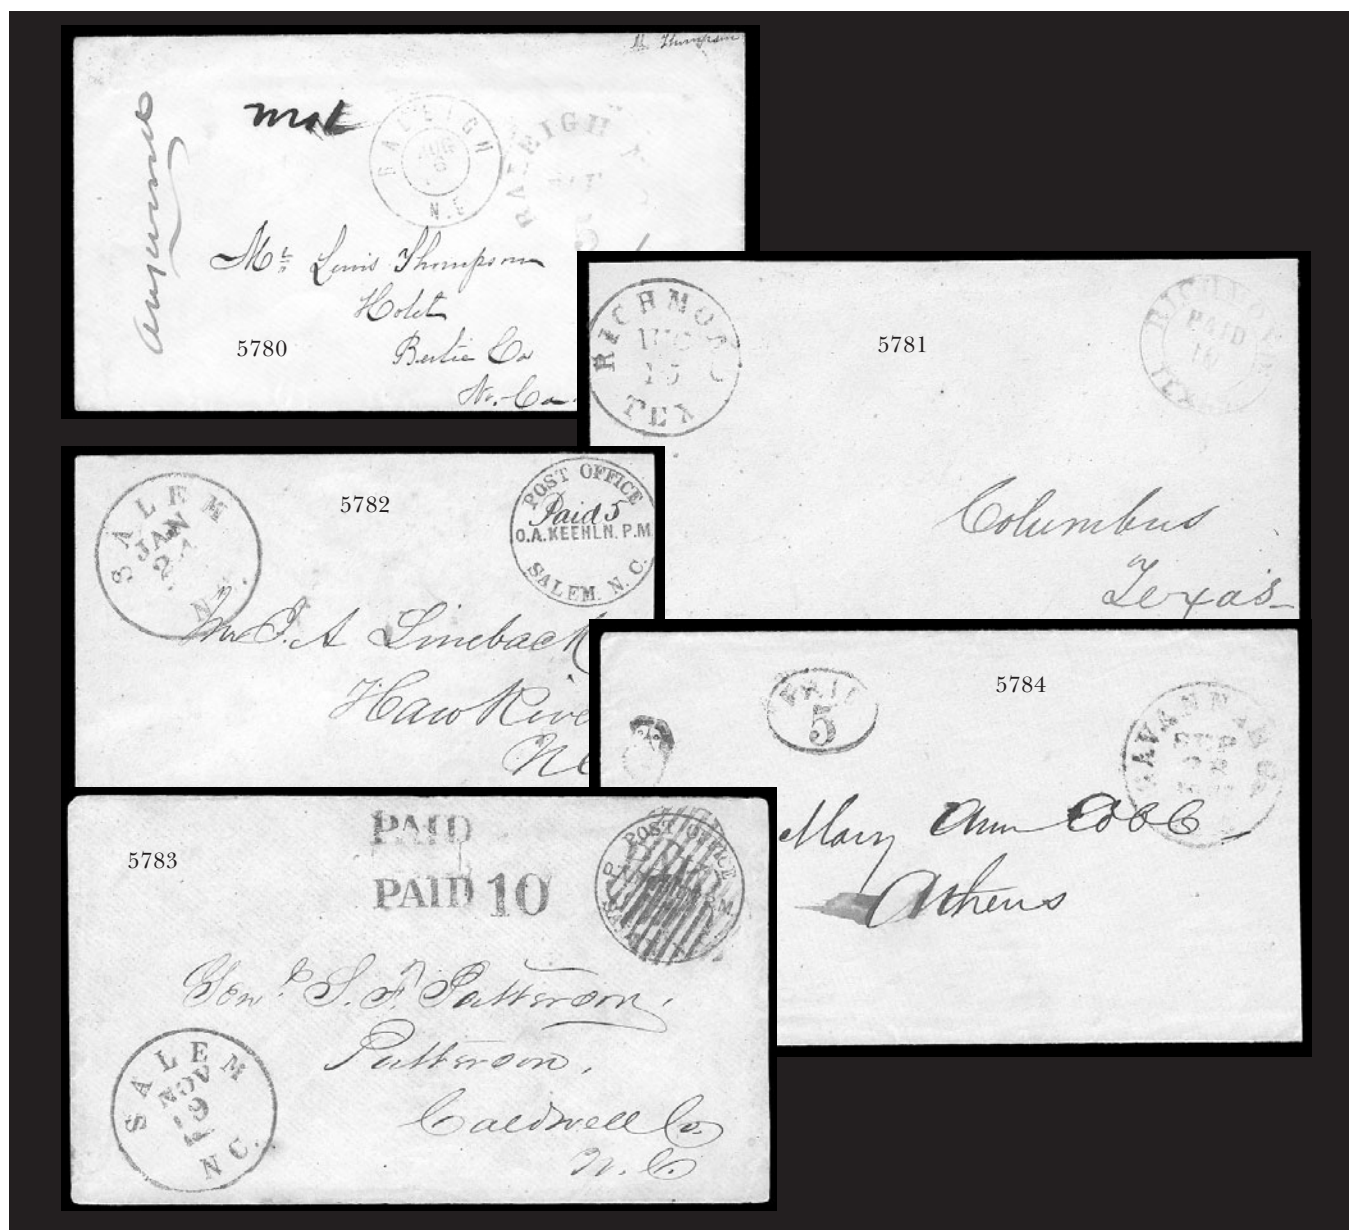 Thompson
RALEIGH
AUG
6
N.C
RALEIGH
5
Mr Lewis Thompson
Bertie Co
N. Ca.
5780
RICHMOND
AUG
15
TEX
5781
RICHMOND
PAID
10
TEXAS
Columbus
Texas
SALEM
JAN
2
N.C.
5782
POST OFFICE
Paid 5
O.A. KEEHLN. P.M.
SALEM. N. C.
A Lineback
Haw Rive
NC
5784
PAID
5
SAVANNAH
SEP
Mary Ann Cobb
Athens
5783
PAID
PAID 10
POST OFFICE
PAID
Genl. S. F. Patterson,
Patterson,
Caldwell Co.
N. C.
SALEM
NOV
19
N C.